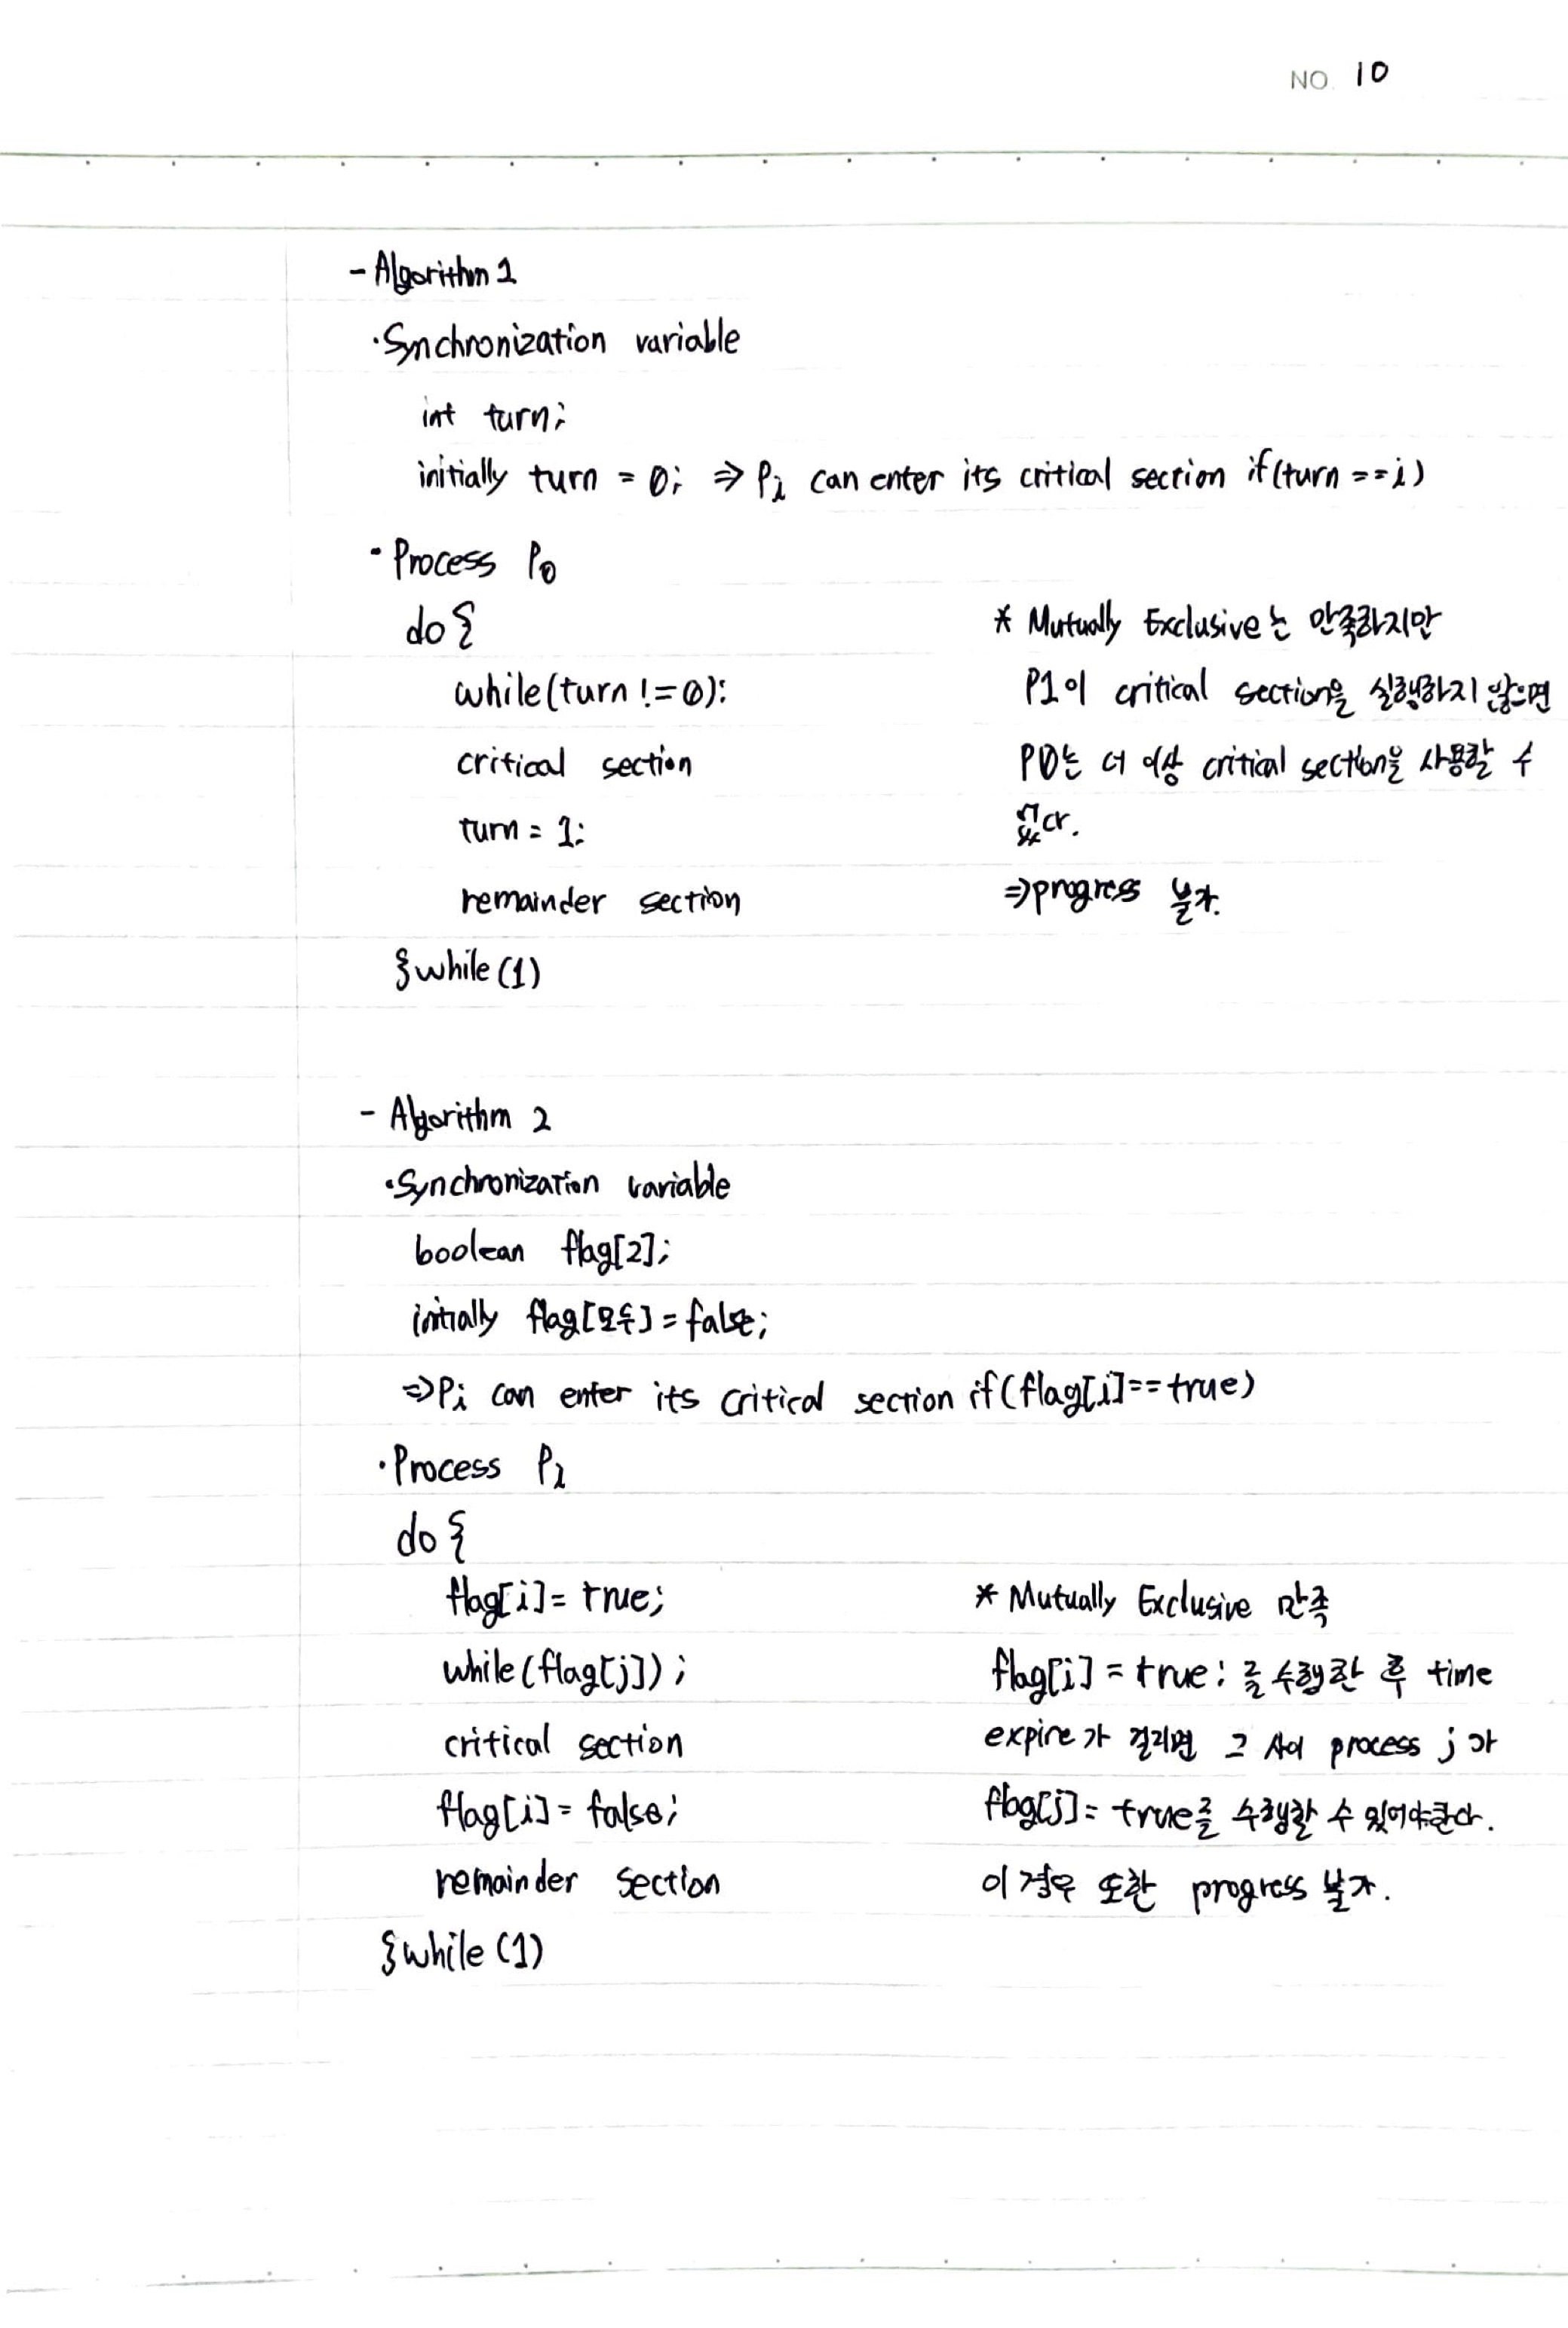 NO. 10
- Algorithm 1
· Synchronization variable
int turn;
initially turn = 0; ⇒ Pi can enter its critical section if(turn == i)
· Process P0
do {
while(turn != 0);
critical section
turn = 1;
remainder section
} while (1)
* Mutually Exclusive는 만족하지만
P1이 critical section을 실행하지 않으면
P0는 더 이상 critical section을 사용할 수
없다.
⇒ progress 불가.
- Algorithm 2
· Synchronization variable
boolean flag[2];
initially flag[모두] = false;
⇒ Pi can enter its critical section if(flag[i]==true)
· Process Pi
do {
flag[i] = true;
while(flag[j]);
critical section
flag[i] = false;
remainder section
} while (1)
* Mutually Exclusive 만족
flag[i] = true; 를 수행한 후 time
expire가 걸리면 그 사이 process j가
flag[j] = true를 수행할 수 있어야한다.
이 경우 또한 progress 불가.